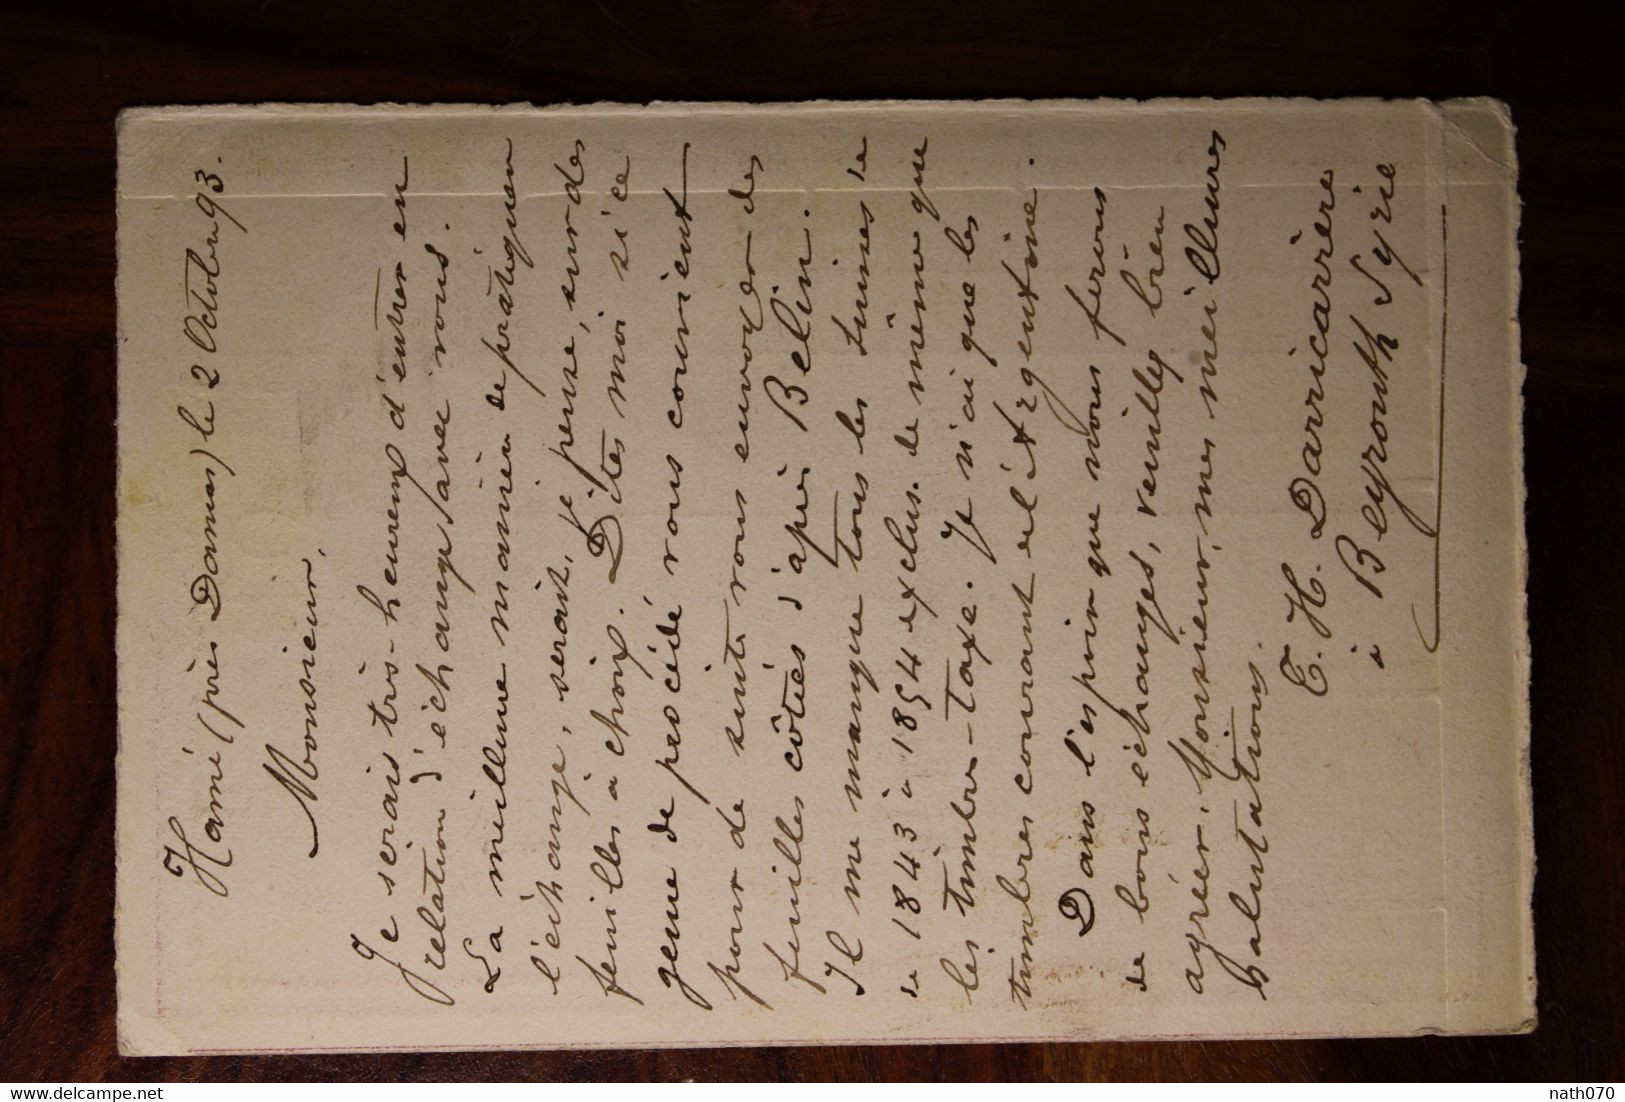 Hamé (près Damas) le 2 Octobre 93.
Monsieur,
Je serais très-heureux d'entrer en
relation d'échange avec vous.
La meilleure manière de pratiquer
l'échange, serait, je pense, sur des
feuilles à choix. Dites moi si ce
genre de procédé vous convient
pour de suite vous envoyer des
feuilles côtées d'après Belin.
Il me manque tous les suisses de
de 1843 à 1854 exclus. de même que
les timbres-taxe. Je n'ai que les
timbres courants et l'Argentine.
Dans l'espoir que nous ferons
de bons échanges, veuillez bien
agréer, Monsieur, mes meilleures
salutations.
E. H. Darricarrère
à Beyrouth Syrie
delcampe.net
nath070